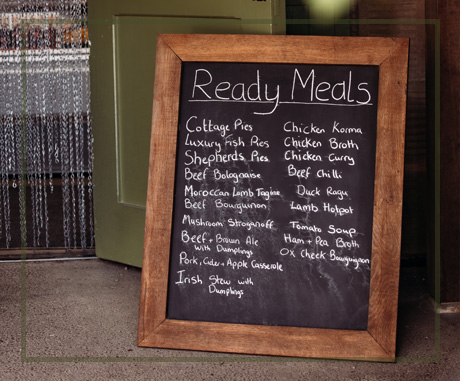 Ready Meals
Cottage Pies
Luxury Fish Pies
Shepherds Pies
Beef Bolognaise
Moroccan Lamb Tagine
Beef Bourguinon
Mushroom Stroganoff
Beef + Brown Ale
with Dumplings
Pork, Cider + Apple Casserole
Irish Stew with
Dumplings
Chicken Korma
Chicken Broth
Chicken Curry
Beef Chilli
Duck Ragu
Lamb Hotpot
Tomato Soup
Ham + Pea Broth
Ox Cheek Bourguignon